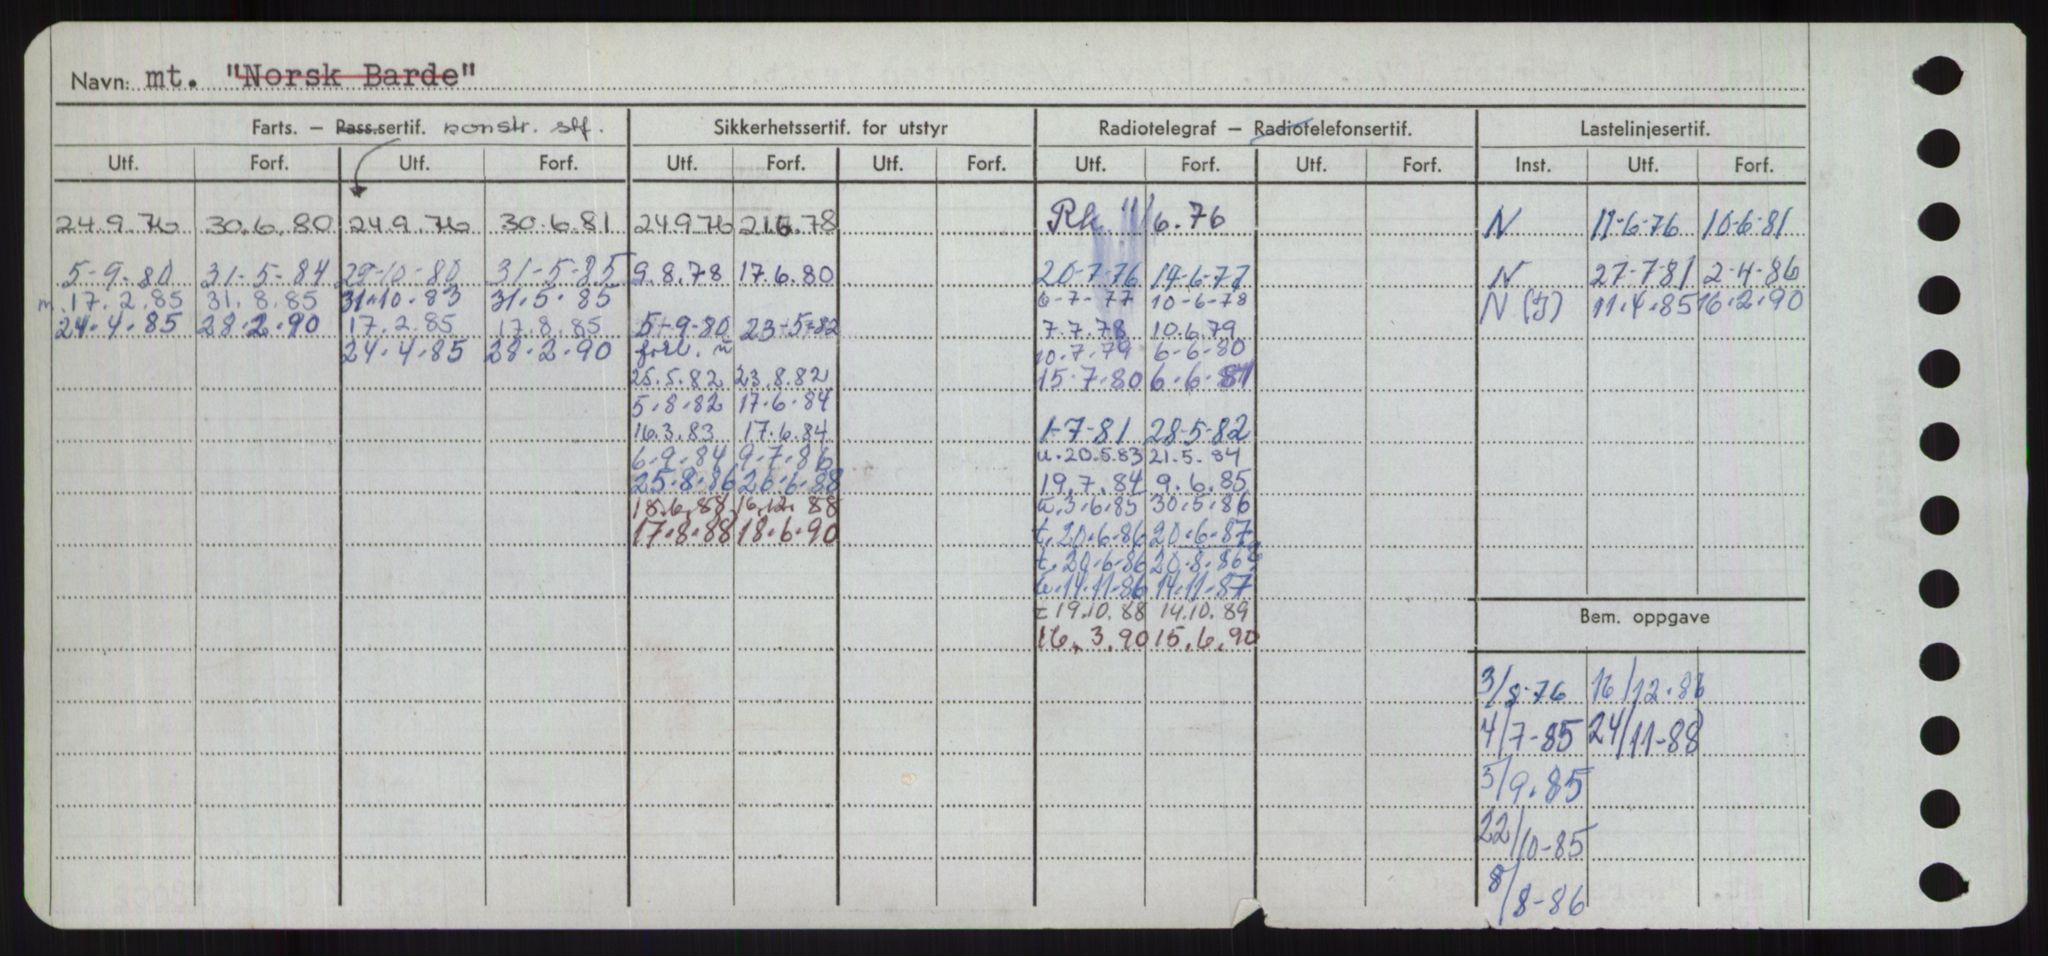 Navn: mt. "Norsk Barde"
Farts. – Pass.sertif. konstr. stf. Sikkerhetssertif. for utstyr Radiotelegraf – Radiotelefonsertif. Lastelinjesertif.
Utf. Forf. Utf. Forf. Utf. Forf. Utf. Forf. Utf. Forf. Utf. Forf. Inst. Utf. Forf.
24.9.76 30.6.80 24.9.76 30.6.81 24.9.76 21.6.78 Rk 11/6.76 N 11-6-76 10-6-81
5-9-80 31-5-84 29-10-80 31-5-85 9.8.78 17.6.80 20-7-76 14-6-77 N 27-7-81 2-4-86
m. 17.2.85 31.8.85 31-10-83 31.5.85 6-7-77 10-6-78 N (J) 11.4.85 16.2.90
24.4.85 28.2.90 17.2.85 17.8.85 5-9-80 23-5-82 7.7.78 10.6.79
24.4.85 28.2.90 forl. 10.7.79 6-6-80
25.5.82 23.8.82 15.7.80 6.6.81
5.8.82 17.6.84
16.3.83 17.6.84 1-7-81 28-5-82
6.9.84 9.7.86 u.20.5.83 21.5.84
25.8.86 26.6.88 19.7.84 9.6.85
18.6.88 16.12.88 u.3.6.85 30.5.86
17.8.88 18.6.90 t.20.6.86 20.6.87
t.20.6.86 20.8.86
u.14.11.86 14.11.87
t 19.10.88 14.10.89
16.3.90 15.6.90
Bem. oppgave
3/8-76 16/12.86
4/7-85 24/11-88
5/9.85
22/10-85
8/8-86